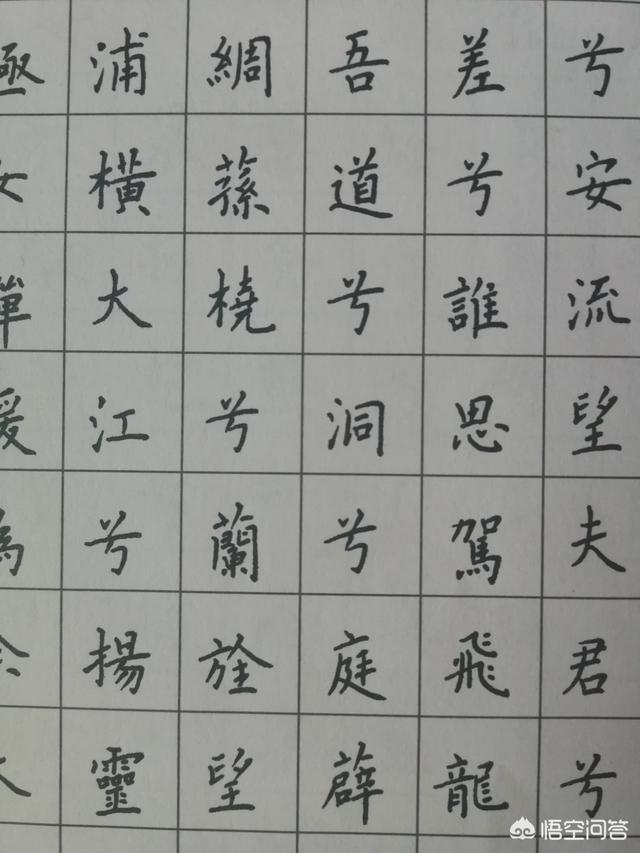 兮安流望夫君兮
差兮誰思駕飛龍
吾道兮洞兮庭薜
綢蓀橈兮蘭旌望
浦橫大江兮揚靈
悟空问答